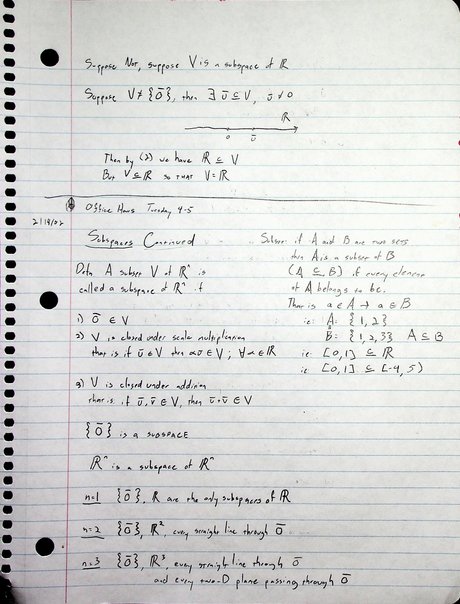 Suppose Not, suppose V is a subspace of ℝ
Suppose V ≠ {0̄}, then ∃ ū ⊆ V, ū ≠ 0
ℝ
0 ū
Then by (2) we have ℝ ⊆ V
But V ⊆ ℝ so THAT V = ℝ
Office Hours Tuesday 4-5
Subspaces Continued
Defn A subset V of ℝⁿ is
called a subspace of ℝⁿ if
1) 0̄ ∈ V
2) V is closed under scalar multiplication
that is if ū ∈ V then αū ∈ V ; ∀ α ∈ ℝ
3) V is closed under addition
that is: if ū, v̄ ∈ V, then ū+v̄ ∈ V
Subset: if A and B are two sets
then A is a subset of B
(A ⊆ B) if every element
of A belongs to be.
That is a ∈ A → a ∈ B
ie: A = {1, 2}
B = {1, 2, 3} A ⊆ B
ie: [0, 1] ⊆ ℝ
ie: [0, 1] ⊆ [-4, 5)
{0̄} is a SUBSPACE
ℝⁿ is a subspace of ℝⁿ
n=1 {0̄}, ℝ are the only subspaces of ℝ
n=2 {0̄}, ℝ², every straight line through 0̄
n=3 {0̄}, ℝ³, every straight line through 0̄
and every two-D plane passing through 0̄